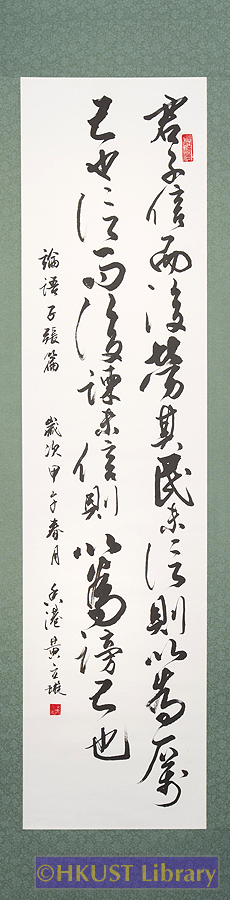 君子信而後勞其民未信則以為厲
己也信而後諫未信則以為謗己也
論語子張篇 歲次甲午春月 香港黃立璇
©HKUST Library